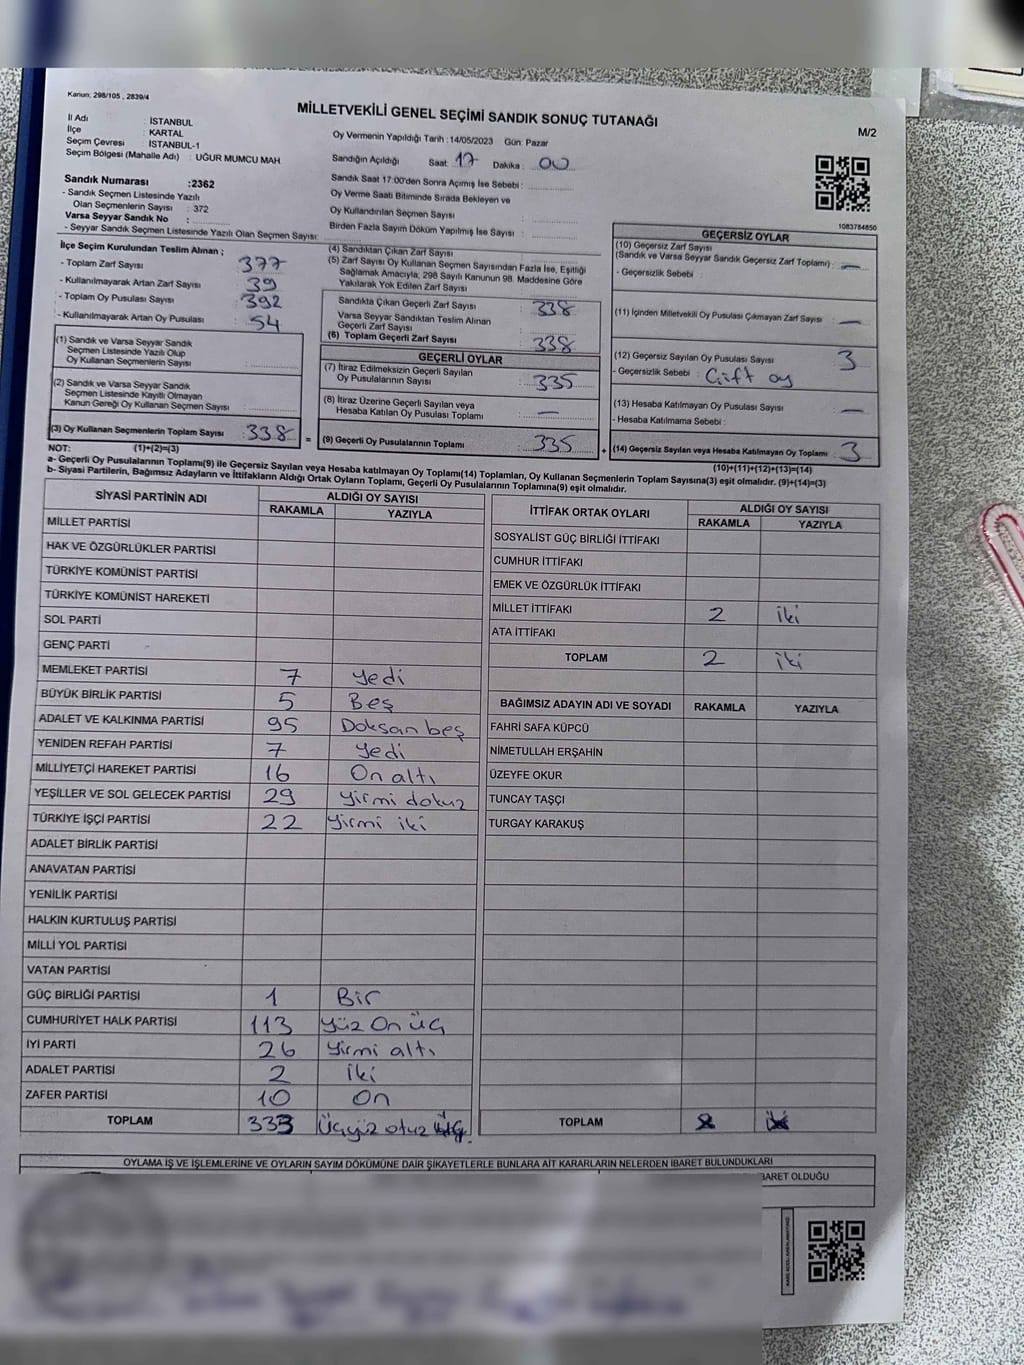 Kanun: 298/105 , 2839/4
MİLLETVEKİLİ GENEL SEÇİMİ SANDIK SONUÇ TUTANAĞI
M/2
İl Adı : İSTANBUL
İlçe : KARTAL
Seçim Çevresi : İSTANBUL-1
Seçim Bölgesi (Mahalle Adı) : UĞUR MUMCU MAH
Oy Vermenin Yapıldığı Tarih : 14/05/2023 Gün: Pazar
Sandığın Açıldığı Saat: 17 Dakika : 00
Sandık Saat 17:00'den Sonra Açımış İse Sebebi :
Oy Verme Saati Bitiminde Sırada Bekleyen ve
Oy Kullandırılan Seçmen Sayısı :
Birden Fazla Sayım Döküm Yapılmış İse Sayısı :
Sandık Numarası :2362
- Sandık Seçmen Listesinde Yazılı
Olan Seçmenlerin Sayısı : 372
Varsa Seyyar Sandık No :
- Seyyar Sandık Seçmen Listesinde Yazılı Olan Seçmen Sayısı:
1083784850
İlçe Seçim Kurulundan Teslim Alınan ;
- Toplam Zarf Sayısı : 377
- Kullanılmayarak Artan Zarf Sayısı : 39
- Toplam Oy Pusulası Sayısı : 392
- Kullanılmayarak Artan Oy Pusulası : 54
(1) Sandık ve Varsa Seyyar Sandık
Seçmen Listesinde Yazılı Olup
Oy Kullanan Seçmenlerin Sayısı :
(2) Sandık ve Varsa Seyyar Sandık
Seçmen Listesinde Kayıtlı Olmayan
Kanun Gereği Oy Kullanan Seçmen Sayısı :
(3) Oy Kullanan Seçmenlerin Toplam Sayısı : 338 =
NOT: (1)+(2)=(3)
(4) Sandıktan Çıkan Zarf Sayısı :
(5) Zarf Sayısı Oy Kullanan Seçmen Sayısından Fazla İse, Eşitliği
Sağlamak Amacıyla, 298 Sayılı Kanunun 98. Maddesine Göre
Yakılarak Yok Edilen Zarf Sayısı :
Sandıkta Çıkan Geçerli Zarf Sayısı : 338
Varsa Seyyar Sandıktan Teslim Alınan
Geçerli Zarf Sayısı :
(6) Toplam Geçerli Zarf Sayısı : 338
GEÇERLİ OYLAR
(7) İtiraz Edilmeksizin Geçerli Sayılan
Oy Pusulalarının Sayısı : 335
(8) İtiraz Üzerine Geçerli Sayılan veya
Hesaba Katılan Oy Pusulası Toplamı : —
(9) Geçerli Oy Pusulalarının Toplamı : 335 +
GEÇERSİZ OYLAR
(10) Geçersiz Zarf Sayısı
(Sandık ve Varsa Seyyar Sandık Geçersiz Zarf Toplamı) : —
- Geçersizlik Sebebi :
(11) İçinden Milletvekili Oy Pusulası Çıkmayan Zarf Sayısı : —
(12) Geçersiz Sayılan Oy Pusulası Sayısı : 3
- Geçersizlik Sebebi : Çift oy
(13) Hesaba Katılmayan Oy Pusulası Sayısı : —
- Hesaba Katılmama Sebebi :
(14) Geçersiz Sayılan veya Hesaba Katılmayan Oy Toplamı : 3
(10)+(11)+(12)+(13)=(14)
a- Geçerli Oy Pusulalarının Toplamı(9) ile Geçersiz Sayılan veya Hesaba katılmayan Oy Toplamı(14) Toplamları, Oy Kullanan Seçmenlerin Toplam Sayısına(3) eşit olmalıdır. (9)+(14)=(3)
b- Siyasi Partilerin, Bağımsız Adayların ve İttifakların Aldığı Ortak Oyların Toplamı, Geçerli Oy Pusulalarının Toplamına(9) eşit olmalıdır.
SİYASİ PARTİNİN ADI ALDIĞI OY SAYISI
RAKAMLA YAZIYLA
MİLLET PARTİSİ
HAK VE ÖZGÜRLÜKLER PARTİSİ
TÜRKİYE KOMÜNİST PARTİSİ
TÜRKİYE KOMÜNİST HAREKETİ
SOL PARTİ
GENÇ PARTİ
MEMLEKET PARTİSİ 7 yedi
BÜYÜK BİRLİK PARTİSİ 5 Beş
ADALET VE KALKINMA PARTİSİ 95 Doksan beş
YENİDEN REFAH PARTİSİ 7 yedi
MİLLİYETÇİ HAREKET PARTİSİ 16 On altı
YEŞİLLER VE SOL GELECEK PARTİSİ 29 yirmi dokuz
TÜRKİYE İŞÇİ PARTİSİ 22 yirmi iki
ADALET BİRLİK PARTİSİ
ANAVATAN PARTİSİ
YENİLİK PARTİSİ
HALKIN KURTULUŞ PARTİSİ
MİLLİ YOL PARTİSİ
VATAN PARTİSİ
GÜÇ BİRLİĞİ PARTİSİ 1 Bir
CUMHURİYET HALK PARTİSİ 113 yüz On üç
İYİ PARTİ 26 yirmi altı
ADALET PARTİSİ 2 iki
ZAFER PARTİSİ 10 On
TOPLAM 333 Üçyüz otuz üç
İTTİFAK ORTAK OYLARI ALDIĞI OY SAYISI
RAKAMLA YAZIYLA
SOSYALİST GÜÇ BİRLİĞİ İTTİFAKI
CUMHUR İTTİFAKI
EMEK VE ÖZGÜRLÜK İTTİFAKI
MİLLET İTTİFAKI 2 iki
ATA İTTİFAKI
TOPLAM 2 iki
BAĞIMSIZ ADAYIN ADI VE SOYADI RAKAMLA YAZIYLA
FAHRİ SAFA KÜPCÜ
NİMETULLAH ERŞAHİN
ÜZEYFE OKUR
TUNCAY TAŞÇI
TURGAY KARAKUŞ
TOPLAM
OYLAMA İŞ VE İŞLEMLERİNE VE OYLARIN SAYIM DÖKÜMÜNE DAİR ŞİKAYETLERLE BUNLARA AİT KARARLARIN NELERDEN İBARET BULUNDUKLARI
BARET OLDUĞU